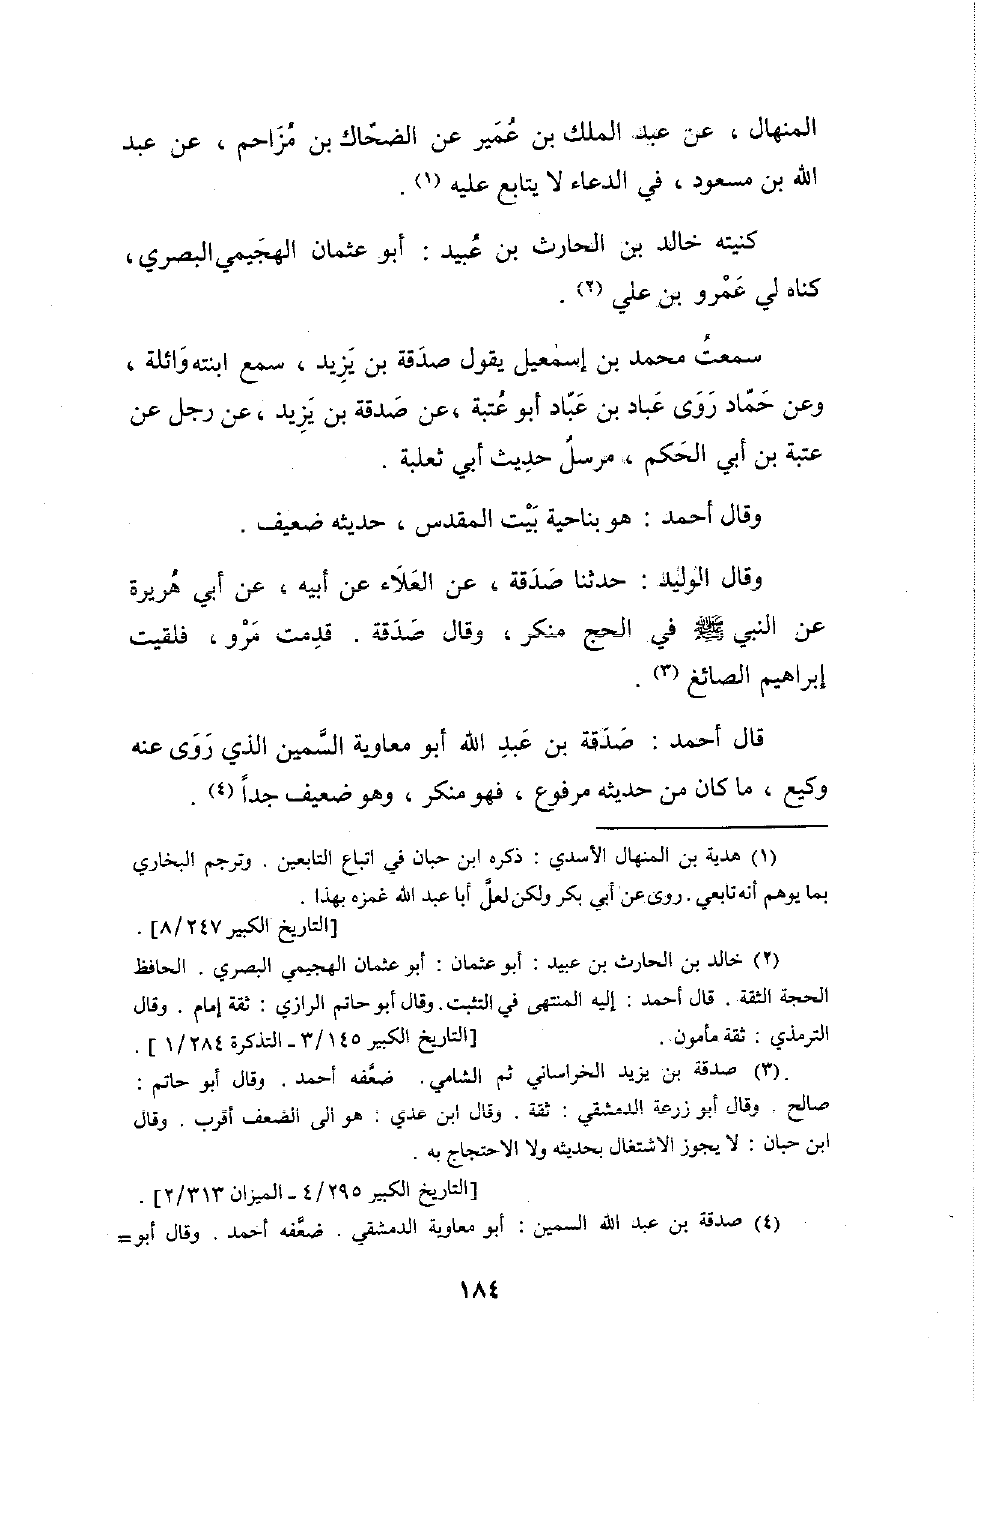 المنهال ، عن عبد الملك بن عُمَير عن الضحّاك بن مُزَاحم ، عن عبد
الله بن مسعود ، في الدعاء لا يتابع عليه (١) .
كنيته خالد بن الحارث بن عُبيد : أبو عثمان الهجَيمي البصري ،
كناه لي عَمْرو بن علي (٢) .
سمعتُ محمد بن إسمٰعيل يقول صدَقة بن يَزِيد ، سمع ابنته وَاثلة ،
وعن حَمّاد رَوَى عَباد بن عَبّاد أبو عُتبة ، عن صَدقة بن يَزِيد ، عن رجل عن
عتبة بن أبي الحَكم ، مرسلٌ حدِيث أبي ثعلبة .
وقال أحمد : هو بناحية بَيْت المقدس ، حديثه ضعيف .
وقال الوليد : حدثنا صَدَقة ، عن العَلَاء عن أبيه ، عن أبي هُريرة
عن النبي ﷺ في الحج منكر ، وقال صَدَقة . قدِمت مَرْو ، فلقيت
إبراهيم الصائغ (٣) .
قال أحمد : صَدَقة بن عَبدِ الله أبو معاوية السَّمين الذي رَوَى عنه
وكيع ، ما كان من حديثه مرفوع ، فهو منكر ، وهو ضعيف جداً (٤) .
(١) هدية بن المنهال الأسدي : ذكره ابن حبان في اتباع التابعين . وترجم البخاري
بما يوهم أنه تابعي . روى عن أبي بكر ولكن لعلَّ أبا عبد الله غمزه بهذا .
[التاريخ الكبير ٨/٢٤٧] .
(٢) خالد بن الحارث بن عبيد : أبو عثمان : أبو عثمان الهجيمي البصري . الحافظ
الحجة الثقة . قال أحمد : إليه المنتهى في التثبت . وقال أبو حاتم الرازي : ثقة إمام . وقال
الترمذي : ثقة مأمون . [التاريخ الكبير ٣/١٤٥ ـ التذكرة ١/٢٨٤] .
(٣) صدقة بن يزيد الخراساني ثم الشامي . ضعَّفه أحمد . وقال أبو حاتم :
صالح . وقال أبو زرعة الدمشقي : ثقة . وقال ابن عدي : هو الى الضعف أقرب . وقال
ابن حبان : لا يجوز الاشتغال بحديثه ولا الاحتجاج به .
[التاريخ الكبير ٤/٢٩٥ ـ الميزان ٢/٣١٣] .
(٤) صدقة بن عبد الله السمين : أبو معاوية الدمشقي . ضعَّفه أحمد . وقال أبو =
١٨٤